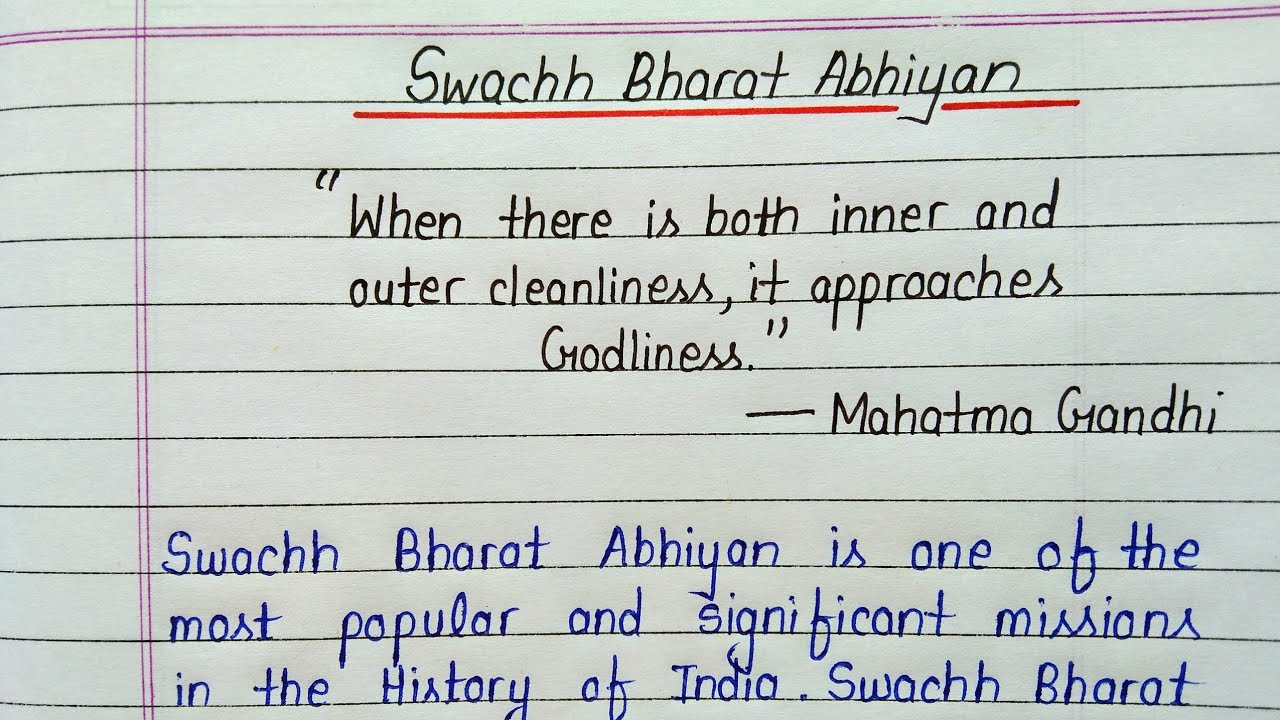 Swachh Bharat Abhiyan
"When there is both inner and
outer cleanliness, it approaches
Godliness."
— Mahatma Gandhi
Swachh Bharat Abhiyan is one of the
most popular and significant missions
in the History of India. Swachh Bharat